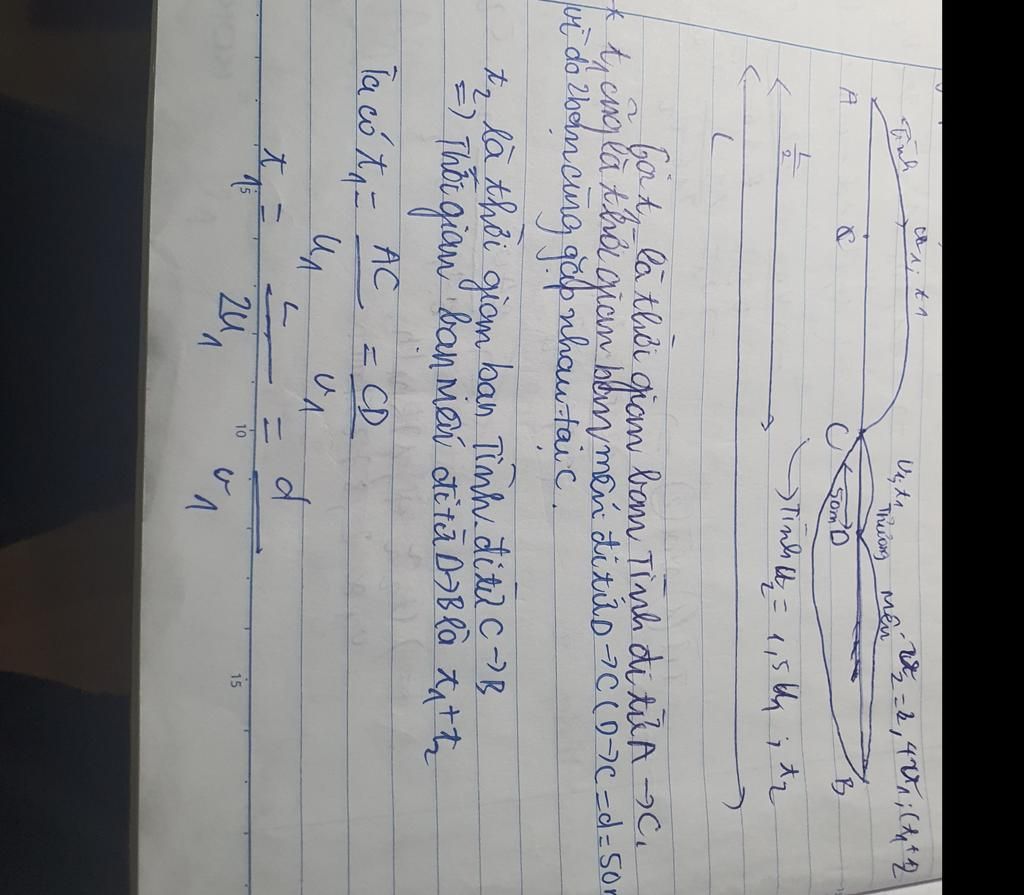 Tình u₁, t₁ v₁, t₁ Thương mến v₂ = 2,4v₁; (t₁+2
A C 50m D B
L/2 → Tình u₂ = 1,5u₁; t₂
L
Gọi t₁ là thời gian bạn Tình đi từ A → C,
* t₁ cũng là thời gian bạn mến đi từ D → C (D → C = d = 50m
vì do 2 bạn cùng gặp nhau tại C.
t₂ là thời gian bạn Tình đi từ C → B
=) Thời gian bạn mến đi từ D → B là t₁ + t₂
Ta có t₁ = AC/u₁ = CD/v₁
t₁ = L/2u₁ = d/v₁
5 10 15